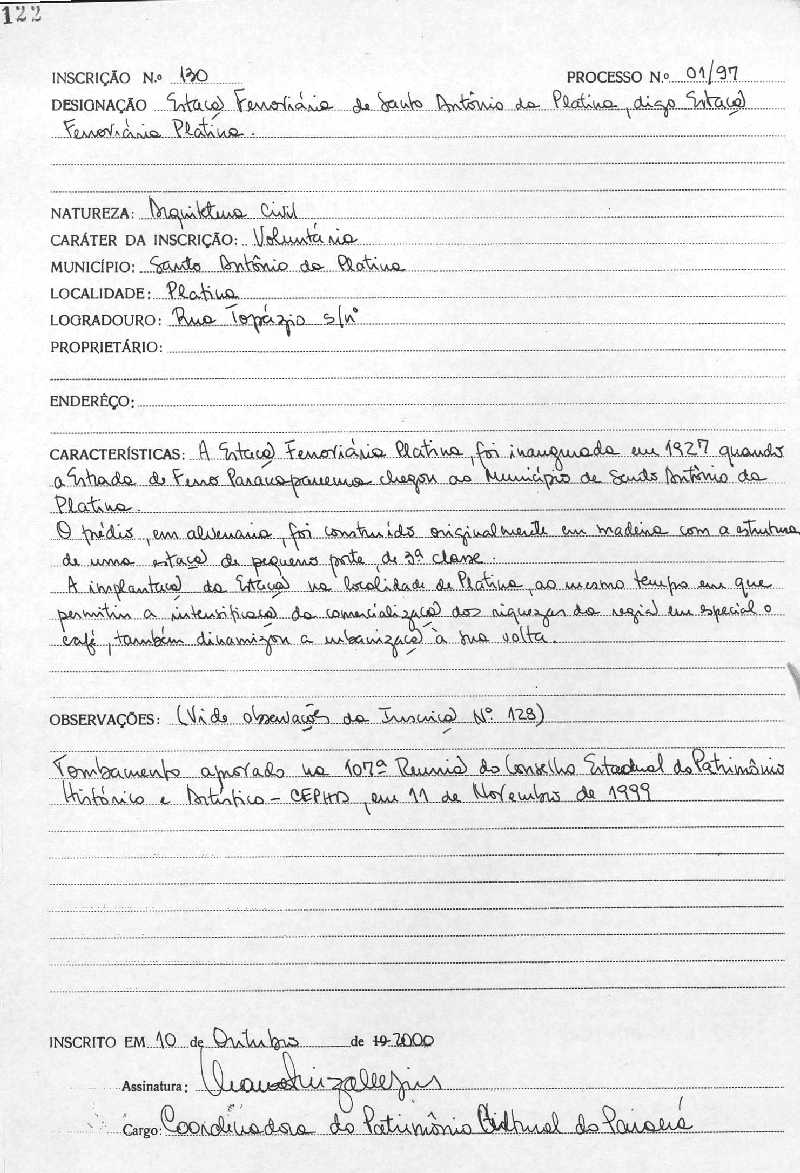 122
INSCRIÇÃO N.º 130 PROCESSO N.º 01/97
DESIGNAÇÃO Estação Ferroviária de Santo Antônio da Platina, digo Estação
Ferroviária Platina.
NATUREZA: Arquitetura Civil
CARÁTER DA INSCRIÇÃO: Voluntária
MUNICÍPIO: Santo Antônio da Platina
LOCALIDADE: Platina
LOGRADOURO: Rua Topázio s/nº
PROPRIETÁRIO:
ENDERÊÇO:
CARACTERÍSTICAS: A Estação Ferroviária Platina, foi inaugurada em 1927 quando
a Estrada de Ferro Paranapanema chegou ao Município de Santo Antônio da
Platina.
O prédio, em alvenaria, foi construído originalmente em madeira com a estrutura
de uma estação de pequeno porte, de 3ª classe.
A implantação da Estação na localidade de Platina, ao mesmo tempo em que
permitiu a intensificação da comercialização das riquezas da região em especial o
café, também dinamizou a urbanização à sua volta.
OBSERVAÇÕES: (Vide observações da Inscrição Nº 128)
Tombamento aprovado na 107ª Reunião do Conselho Estadual do Patrimônio
Histórico e Artístico - CEPHA, em 11 de Novembro de 1999
INSCRITO EM 10 de Outubro de 19 2000
Assinatura:
Cargo: Coordenadora do Patrimônio Cultural do Paraná